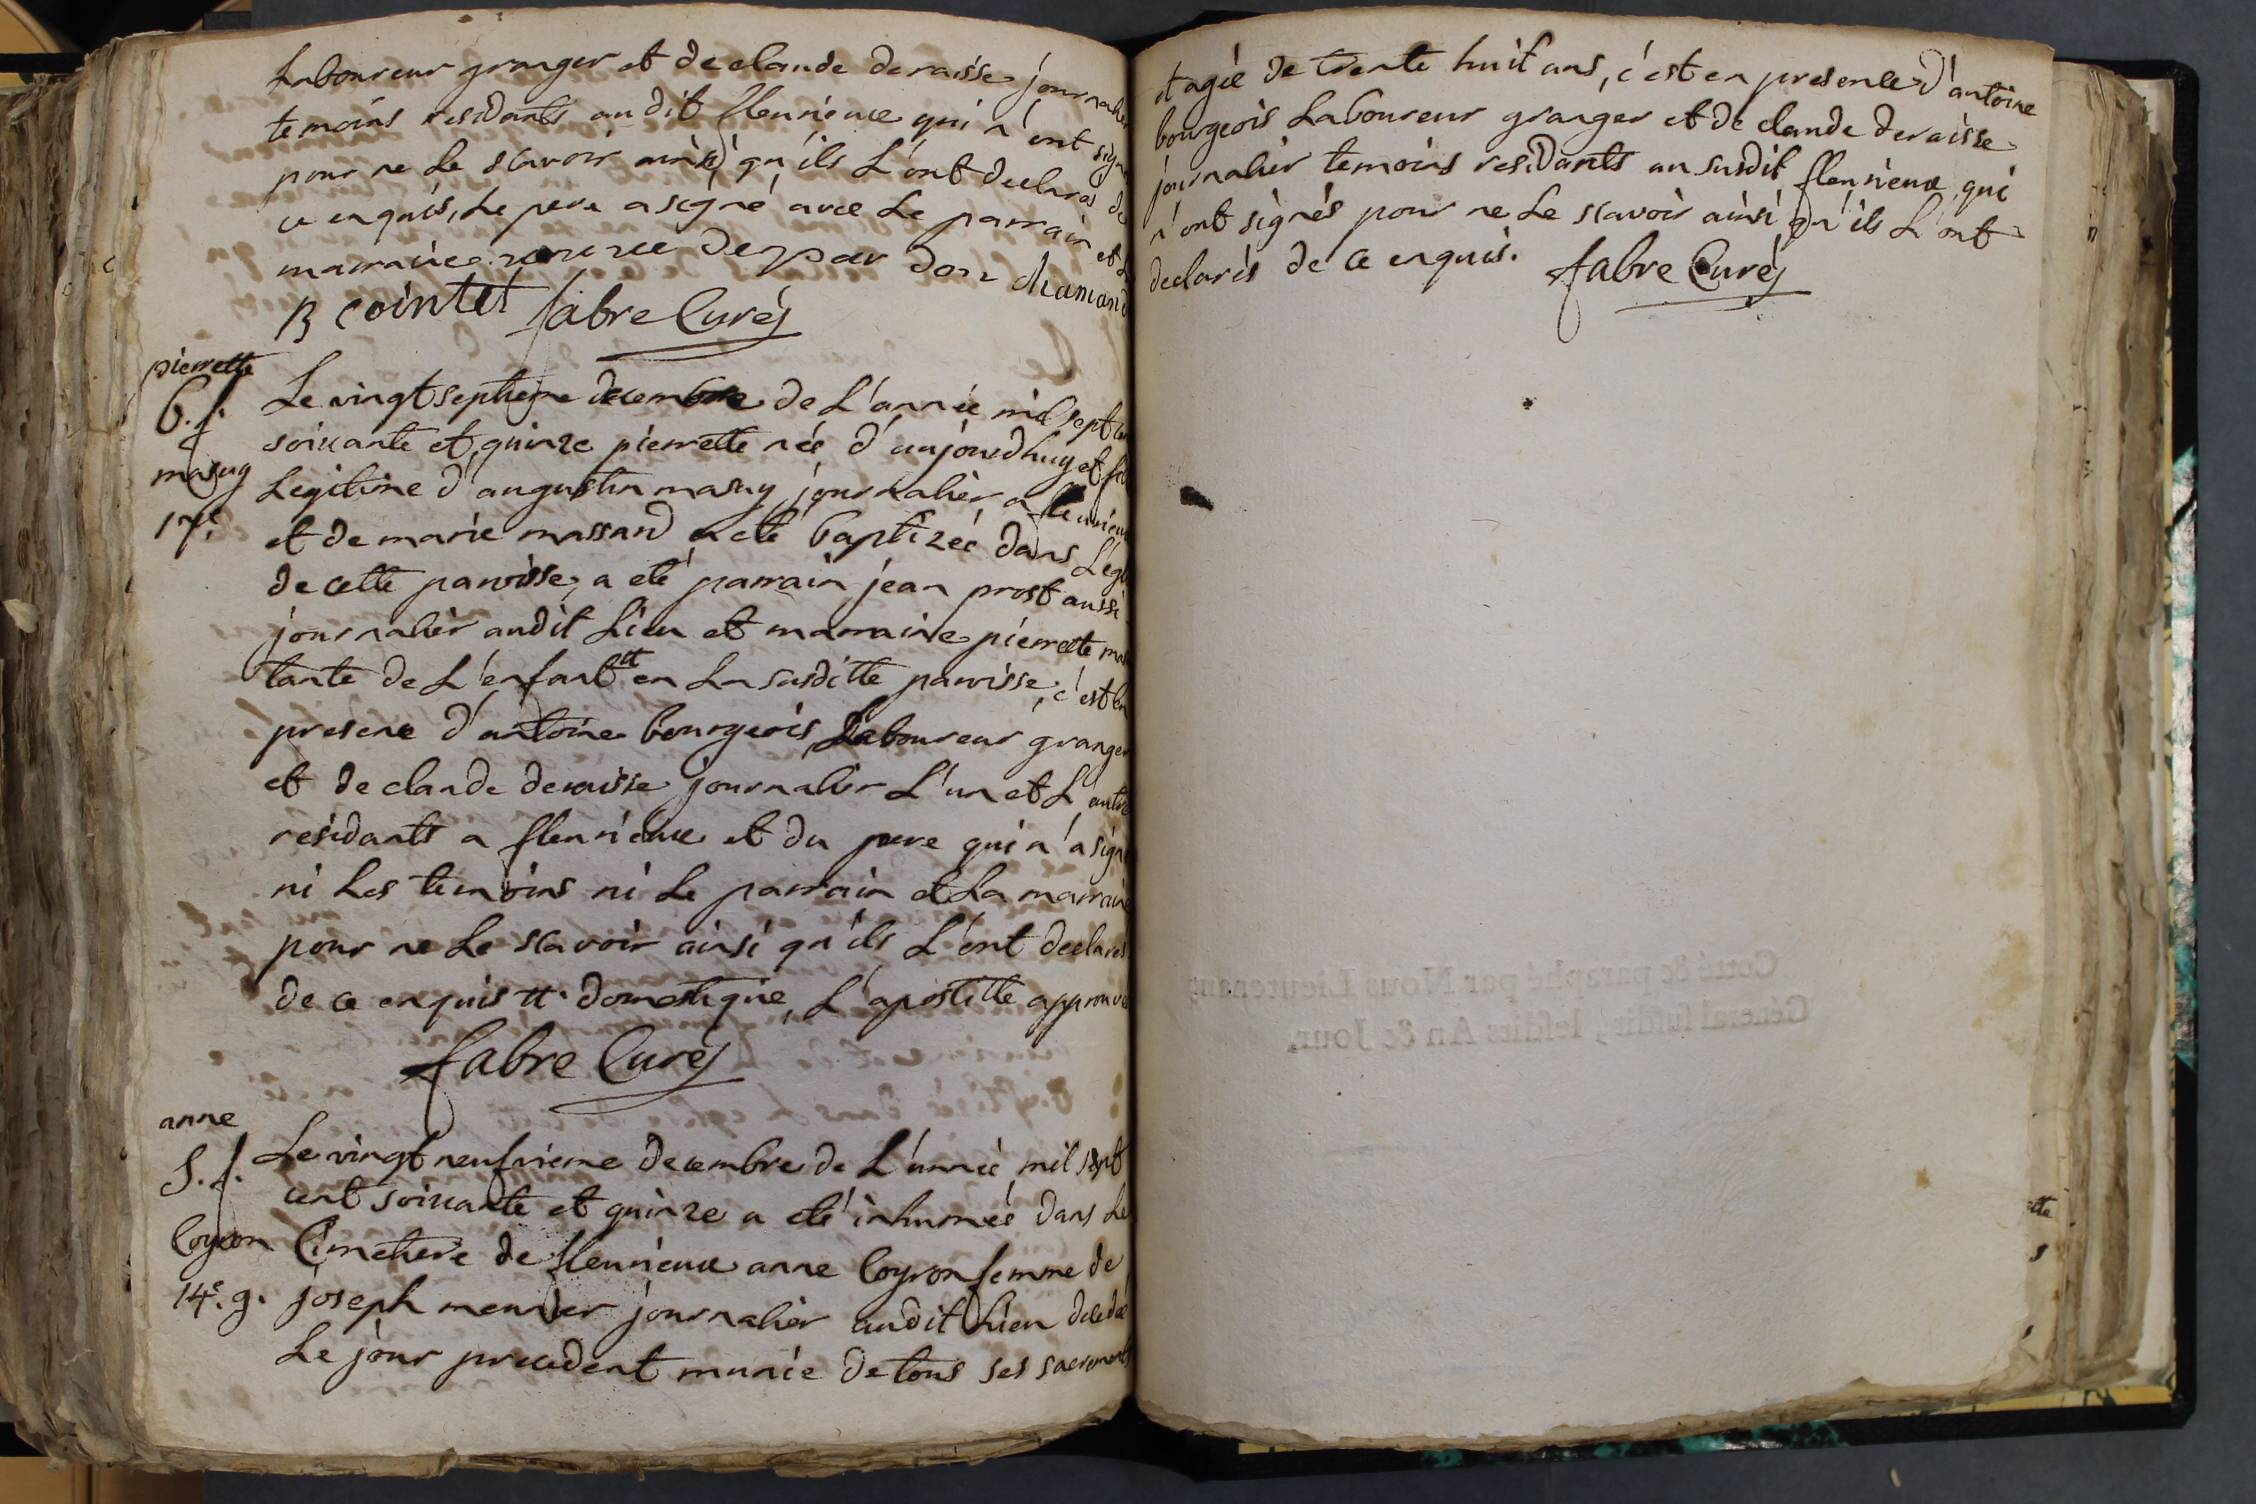 Laboureur granger et de claude deraisse journalier
temoins residants audit fleurieux qui n'ont signé
pour ne Le scavoir ainsi qu'ils L'ont declarés de
ce enquis, Le pere a signé avec Le parrain et La
marraine.
B cointet fabre Curéj
pierrette
b. f.
masuy
17e.
Le vingt septieme decembre de L'année mil sept cent
soixante et quinze pierrette née d'aujourdhuy et fille
Legitime d'augustin masuy journalier a fleurieux
et de marie massard a eté baptizéé dans L'eglise
de cette paroisse, a eté parrain jean prost aussi
journalier audit Lieu et marraine pierrette
tante de L'enfant tt en La susditte paroisse, c'est en
presence d'antoine bourgeois Laboureur granger
et de claude deraisse journalier L'un et L'autre
residants a fleurieux et du pere qui n'a signé
ni Les temoins ni Le parrain et La marraine
pour ne Le scavoir ainsi qu'ils L'ont declarés
de ce enquis tt. domestique, L'apostille approuvé
fabre Curéj
anne
S. f.
Coyron
14e. g.
Le vingt neufvieme decembre de L'année mil sept
cent soixante et quinze a eté inhumée dans Le
Cimetiere de fleurieux anne Coyron femme de
joseph meunier journalier audit Lieu
Le jour precedent munie de tous ses sacrements
et agée de trente huit ans, c'est en presence d'antoine
bourgeois Laboureur granger et de claude deraisse
journalier temoins residants au susdit fleurieux qui
n'ont signés pour ne Le scavoir ainsi qu'ils L'ont
declarés de ce enquis. fabre Curéj
Cotté & paraphé par Nous Lieutenant
Général susdit, lesdits An & Jour.